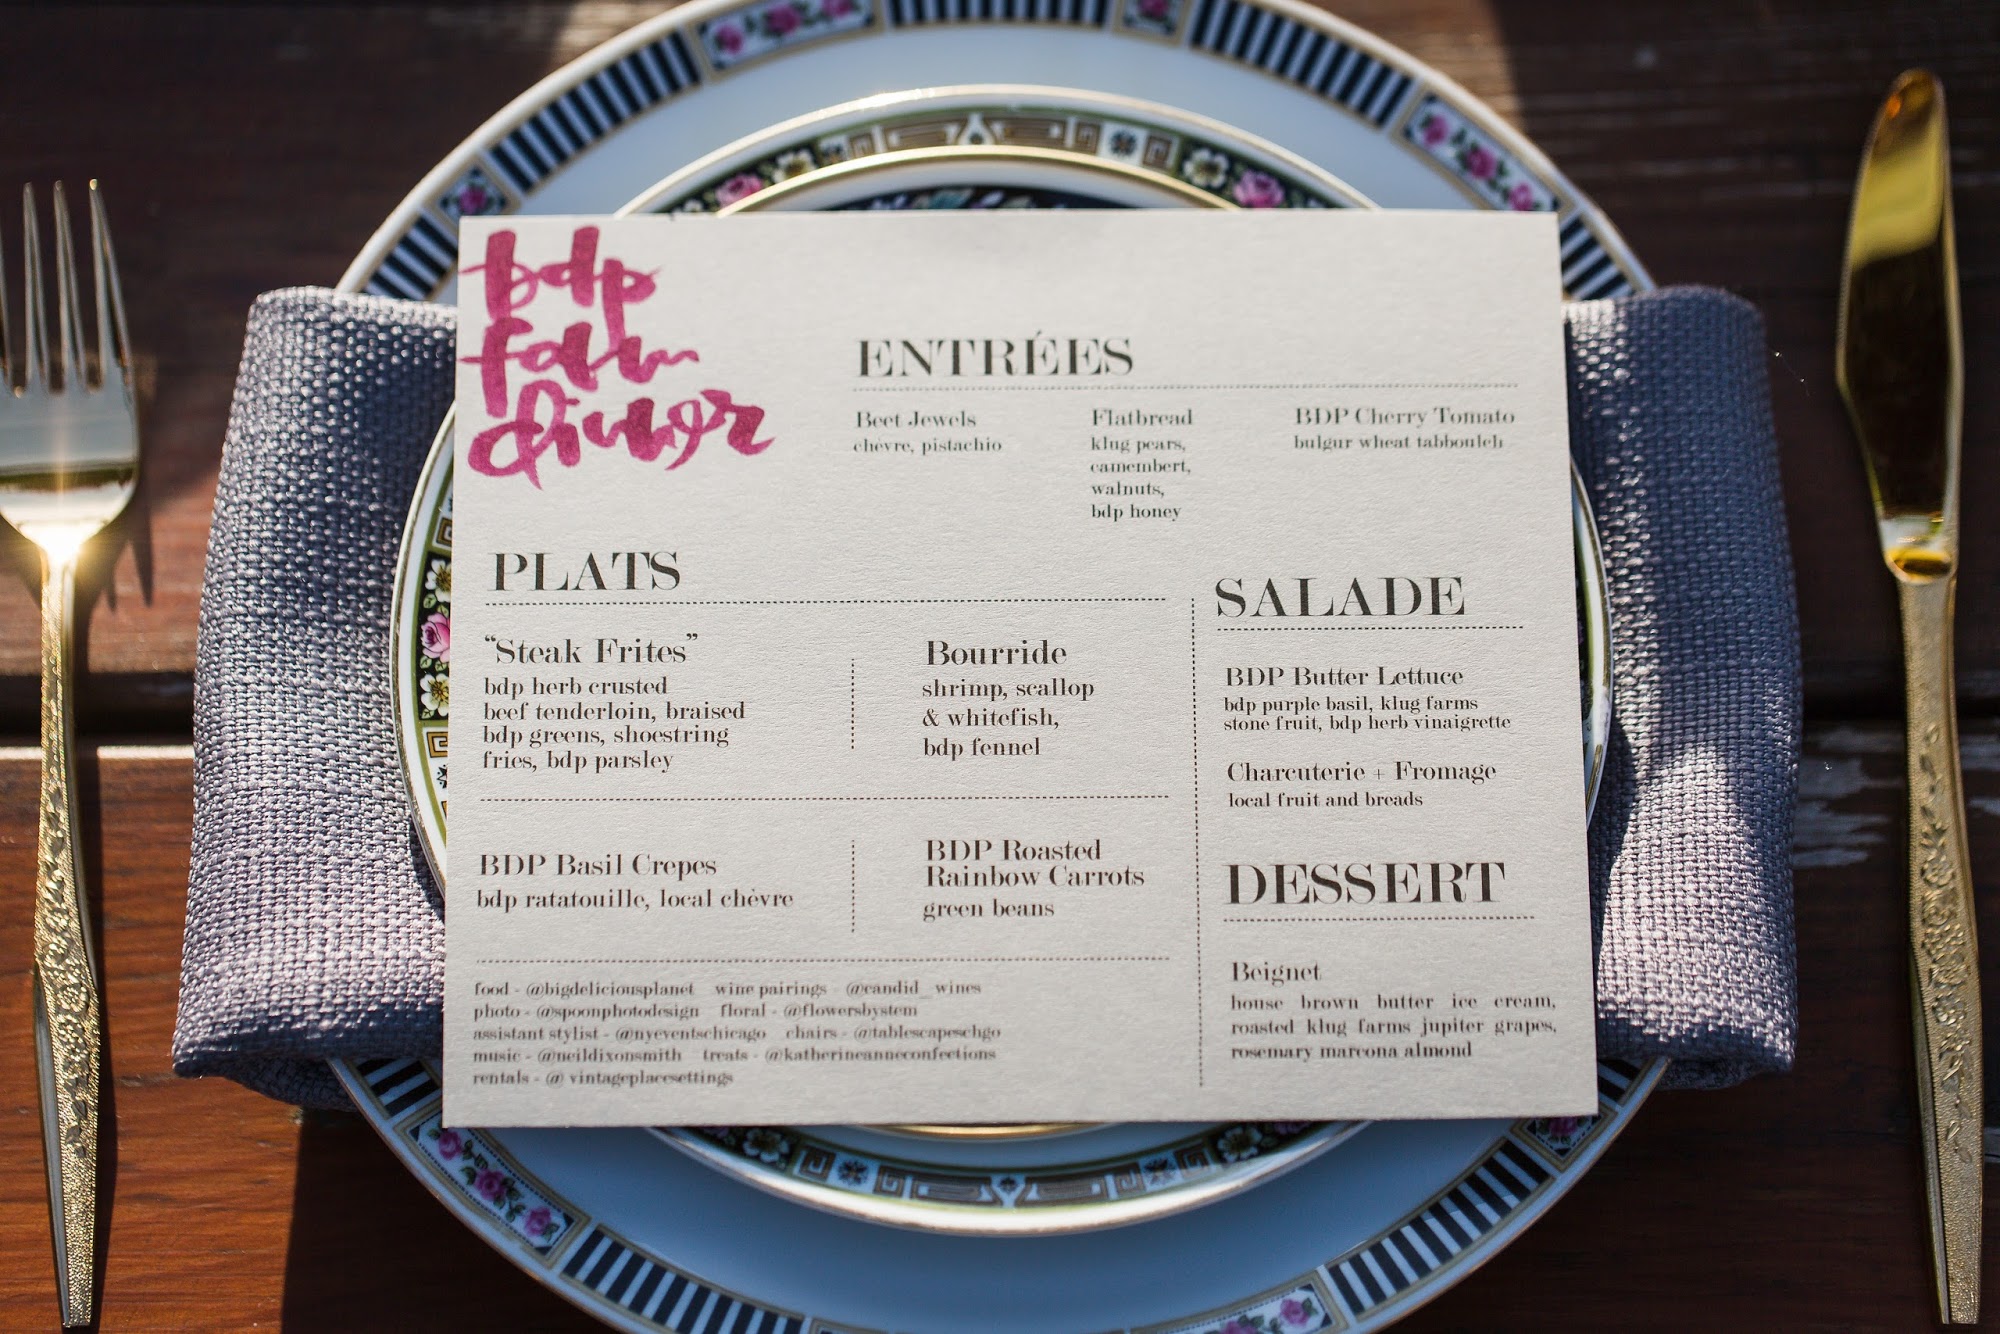 bdp
fall
dinner
ENTRÉES
Beet Jewels
chèvre, pistachio
Flatbread
klug pears,
camembert,
walnuts,
bdp honey
BDP Cherry Tomato
bulgur wheat tabbouleh
PLATS
“Steak Frites”
bdp herb crusted
beef tenderloin, braised
bdp greens, shoestring
fries, bdp parsley
Bourride
shrimp, scallop
& whitefish,
bdp fennel
BDP Basil Crepes
bdp ratatouille, local chèvre
BDP Roasted
Rainbow Carrots
green beans
SALADE
BDP Butter Lettuce
bdp purple basil, klug farms
stone fruit, bdp herb vinaigrette
Charcuterie + Fromage
local fruit and breads
DESSERT
Beignet
house brown butter ice cream,
roasted klug farms jupiter grapes,
rosemary marcona almond
food - @bigdeliciousplanet wine pairings - @candid_wines
photo - @spoonphotodesign floral - @flowersbystem
assistant stylist - @nyeventschicago chairs - @tablescapeschgo
music - @neildixonsmith treats - @katherineanneconfections
rentals - @ vintageplacesettings